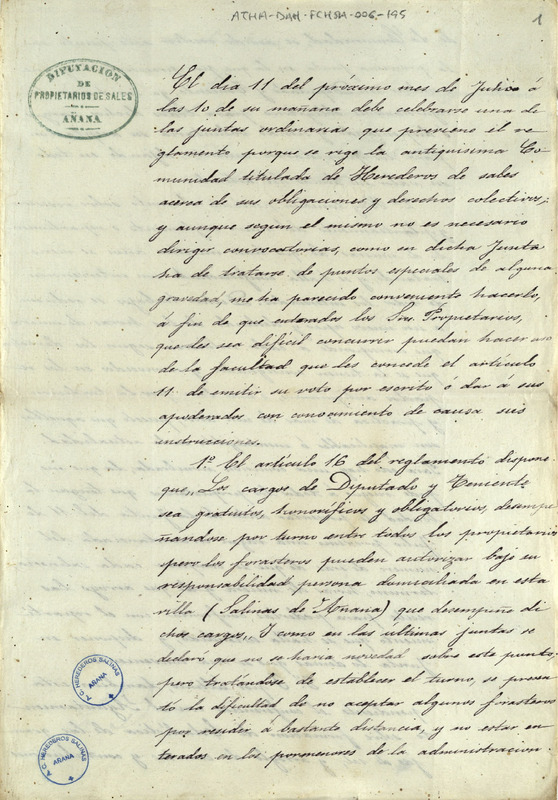 ATHA-DAH-FCHSA-006-195
1
DIPUTACION
DE
PROPIETARIOS DE SALES
AÑANA
El dia 11 del próximo mes de Julio á
las 10 de su mañana debe celebrarse una de
las juntas ordinarias que previene el re-
glamento porque se rige la antiquisima Co-
munidad titulada de Herederos de sales
acerca de sus obligaciones y derechos colectivos;
y aunque segun el mismo no es necesario
dirigir convocatorias, como en dicha Junta
ha de tratarse de puntos especiales de alguna
gravedad, me ha parecido conveniente hacerlo,
á fin de que enterados los Sres. Propietarios,
que les sea dificil concurrir puedan hacer uso
de la facultad que les concede el artículo
11 de emitir su voto por escrito ó dar á sus
apoderados con conocimiento de causa sus
instrucciones.
1º El artículo 16 del reglamento dispone
que „Los cargos de Diputado y Teniente
sea gratuitos, honoríficos y obligatorios, desempe-
ñandose por turno entre todos los propietarios
pero los forasteros pueden autorizar bajo su
responsabilidad persona domiciliada en esta
villa (Salinas de Añana) que desempeñe di-
chos cargos„ Y como en las ultimas juntas se
declaró que no se haria novedad sobre este punto
pero tratándose de establecer el turno, se presen-
tó la dificultad de no aceptar algunos forasteros
por residir á bastante distancia, y no estar en-
terados en los pormenores de la administracion
A.C. HEREDEROS SALINAS
AÑANA
A.C. HEREDEROS SALINAS
AÑANA